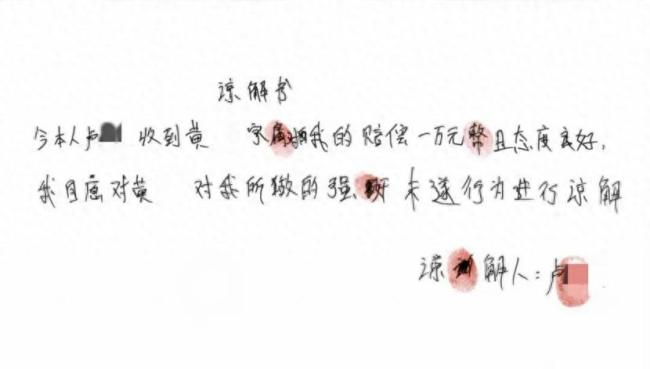 谅解书
今本人卢 收到黄 家属 我的赔偿一万元 且态度良好,
我自愿对黄 对我所做的强 未遂行为进行谅解
谅 解人:卢